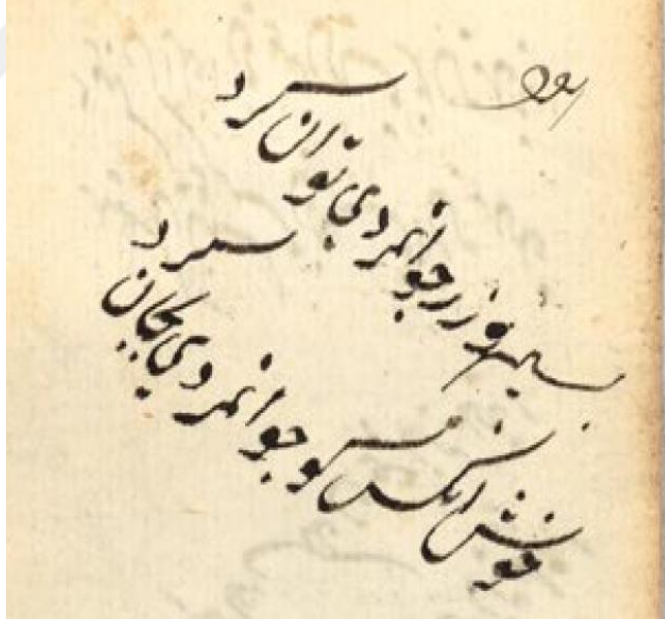 بسیم و زر جوانمردی توان کرد
خوش آنکس کو جوانمردی بجان کرد